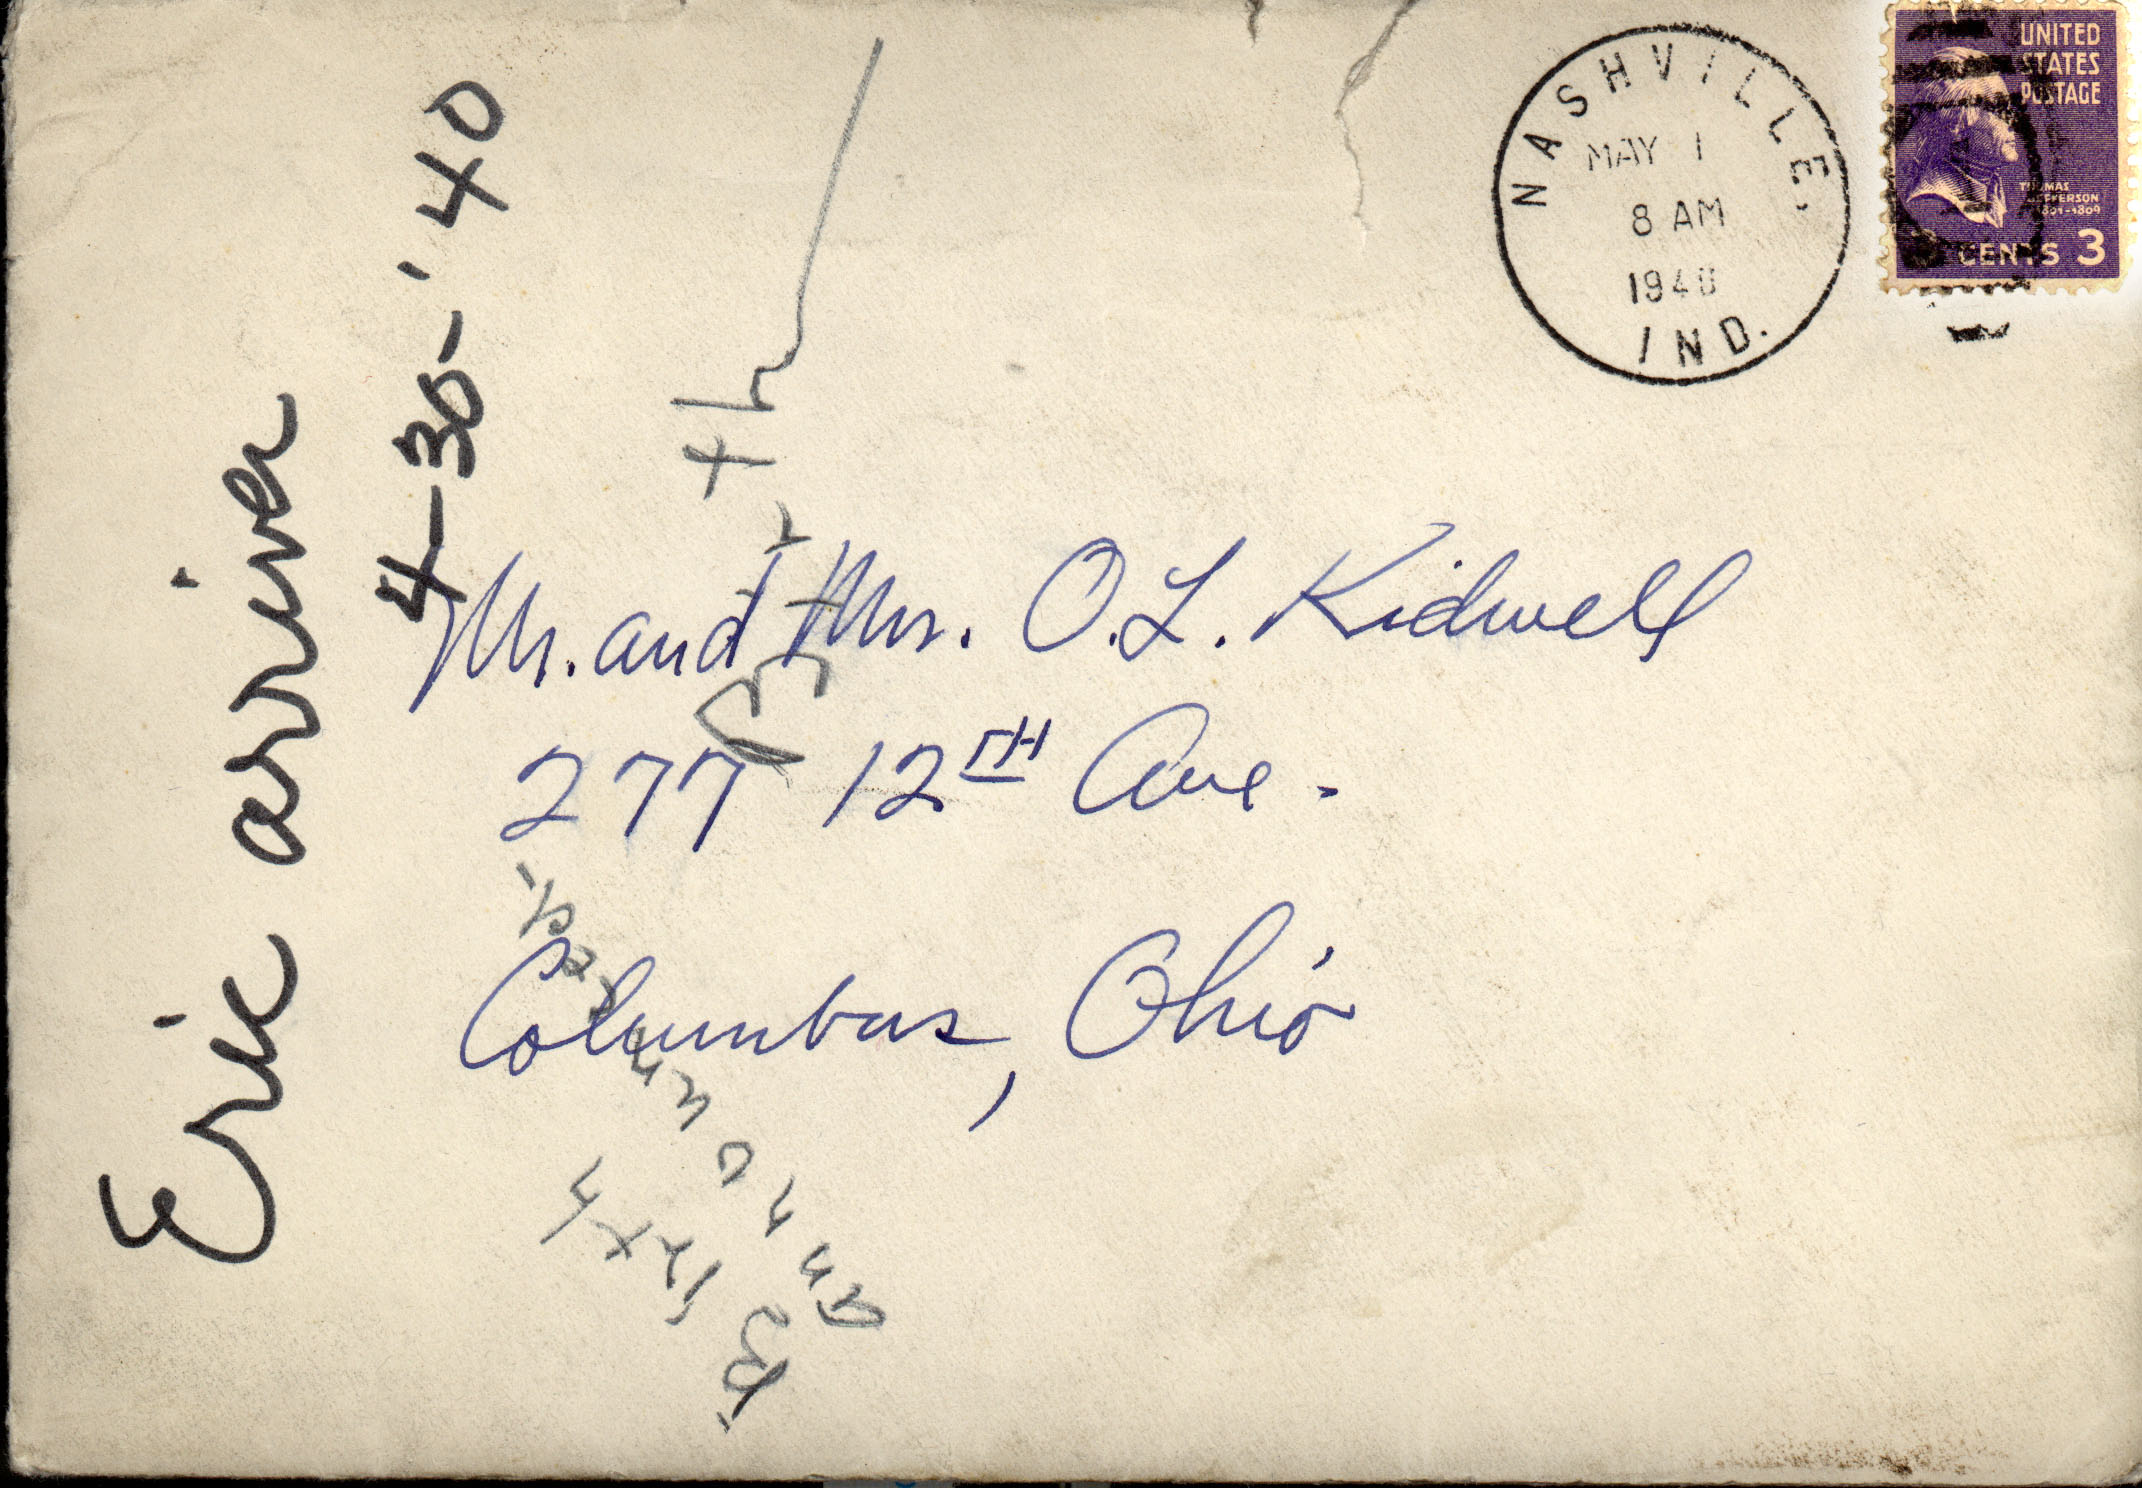 NASHVILLE,
MAY 1
8 AM
1940
IND.
UNITED
STATES
POSTAGE
THOMAS
JEFFERSON
1801-1809
3 CENTS 3
Eric arrives
4-30-'40
Mr. and Mrs. O.L. Kidwell
277 12TH Ave.
Columbus, Ohio